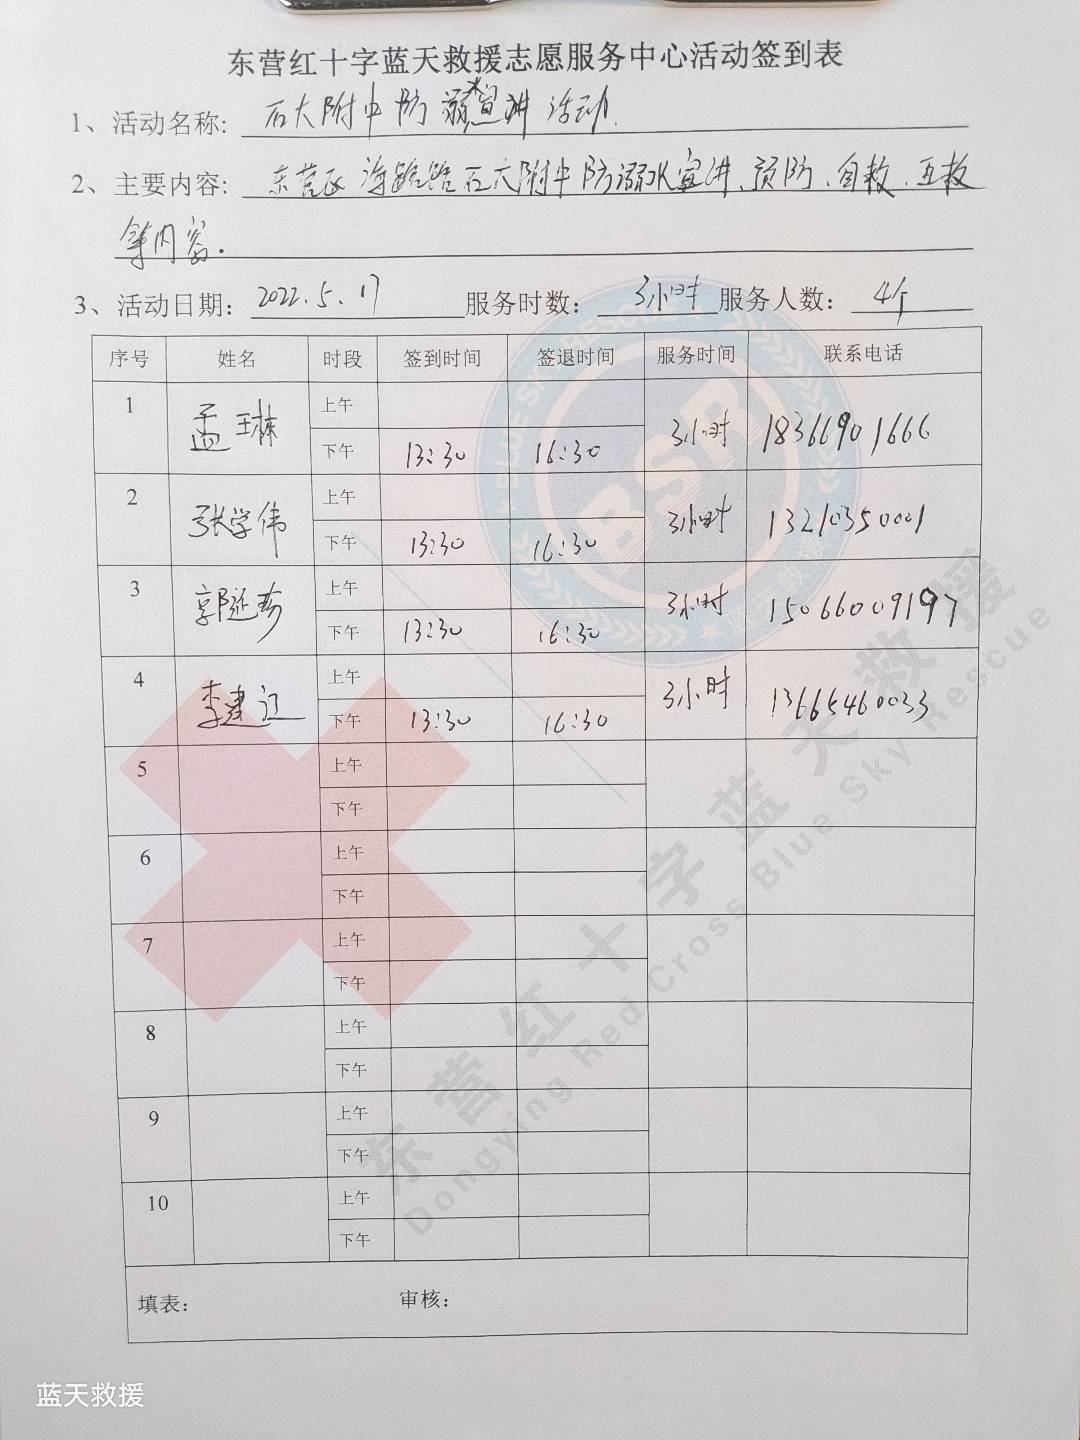 东营红十字蓝天救援志愿服务中心活动签到表
1、活动名称: 石大附中防溺水宣讲活动.
2、主要内容: 东营区 石大附中防溺水宣讲、预防、自救、互救
等内容.
3、活动日期: 2022.5.17 服务时数: 3小时 服务人数: 4个
序号 姓名 时段 签到时间 签退时间 服务时间 联系电话
1 孟琳 上午
下午 13:30 16:30 3小时 18366901666
2 张学伟 上午
下午 13:30 16:30 3小时 13210350001
3 郭延 上午
下午 13:30 16:30 3小时 15066009197
4 李建 上午
下午 13:30 16:30 3小时 13665460033
5 上午
下午
6 上午
下午
7 上午
下午
8 上午
下午
9 上午
下午
10 上午
下午
填表: 审核:
BSR
东营红十字蓝天救援
Dongying Red Cross Blue Sky Rescue
蓝天救援